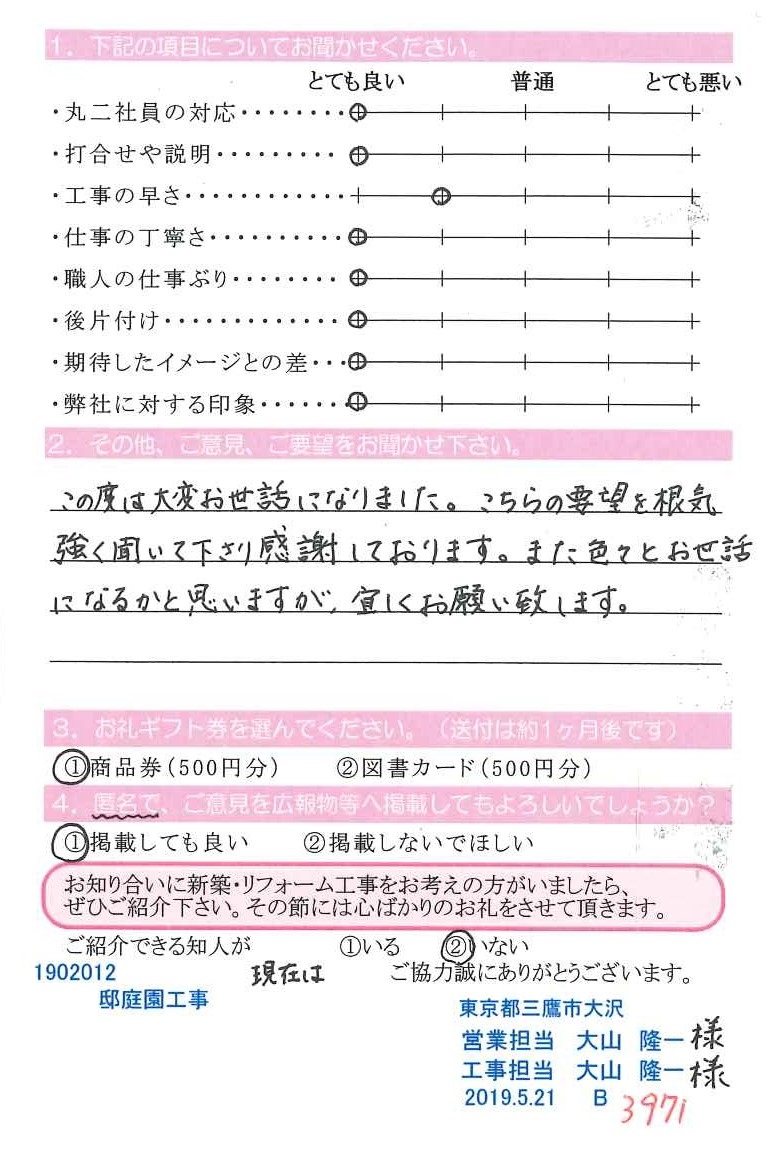 1．下記の項目についてお聞かせください。
とても良い　普通　とても悪い
・丸二社員の対応・・・・・・・・
・打合せや説明・・・・・・・・・
・工事の早さ・・・・・・・・・・・・
・仕事の丁寧さ・・・・・・・・・・
・職人の仕事ぶり・・・・・・・・
・後片付け・・・・・・・・・・・・・
・期待したイメージとの差・・・
・弊社に対する印象・・・・・・
2．その他、ご意見、ご要望をお聞かせ下さい。
この度は大変お世話になりました。こちらの要望を根気
強く聞いて下さり感謝しております。また色々とお世話
になるかと思いますが、宜しくお願い致します。
3．お礼ギフト券を選んでください。（送付は約1ヶ月後です）
①商品券(500円分)　②図書カード(500円分)
4．匿名で、ご意見を広報物等へ掲載してもよろしいでしょうか？
①掲載しても良い　②掲載しないでほしい
お知り合いに新築・リフォーム工事をお考えの方がいましたら、
ぜひご紹介下さい。その節には心ばかりのお礼をさせて頂きます。
ご紹介できる知人が　①いる　②いない
1902012　現在は　ご協力誠にありがとうございます。
邸庭園工事
東京都三鷹市大沢
営業担当　大山　隆一様
工事担当　大山　隆一様
2019.5.21　B　3971